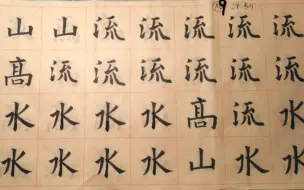 山山流流流流流
髙流流流流流流
水水水水髙流水
水水水水山水水